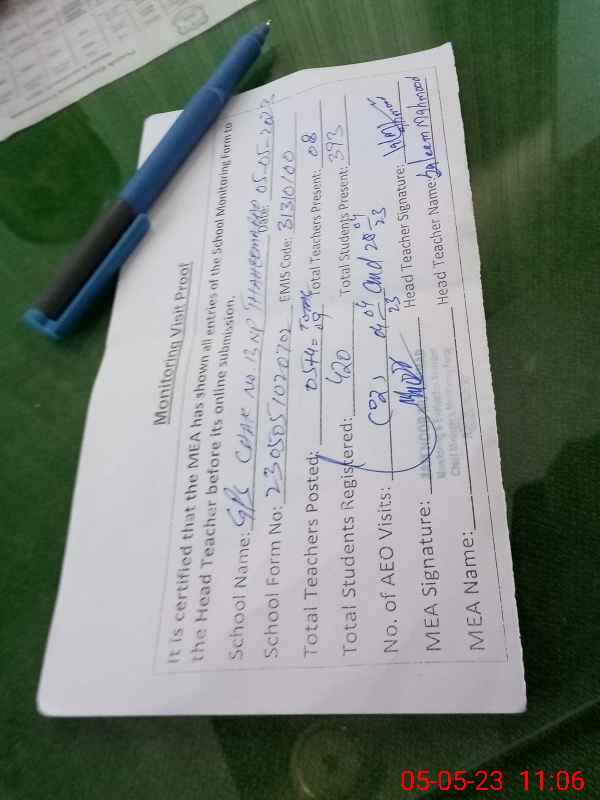 Monitoring Visit Proof
It is certified that the MEA has shown all entries of the School Monitoring Form to
the Head Teacher before its online submission.
School Name: GPS CHAK No. 13 NP Date: 05-05-2023
School Form No: 230505102070 EMIS Code: 31310100
Total Teachers Posted: 05+4= 09 Total Teachers Present: 08
Total Students Registered: 420 Total Students Present: 393
No. of AEO Visits: (02) 04 04 23 and 28 04 23
MEA Signature: Head Teacher Signature:
MEA Name: Head Teacher Name: Saleem Mahmood
Monitoring & Evaluation Assistant
05-05-23 11:06